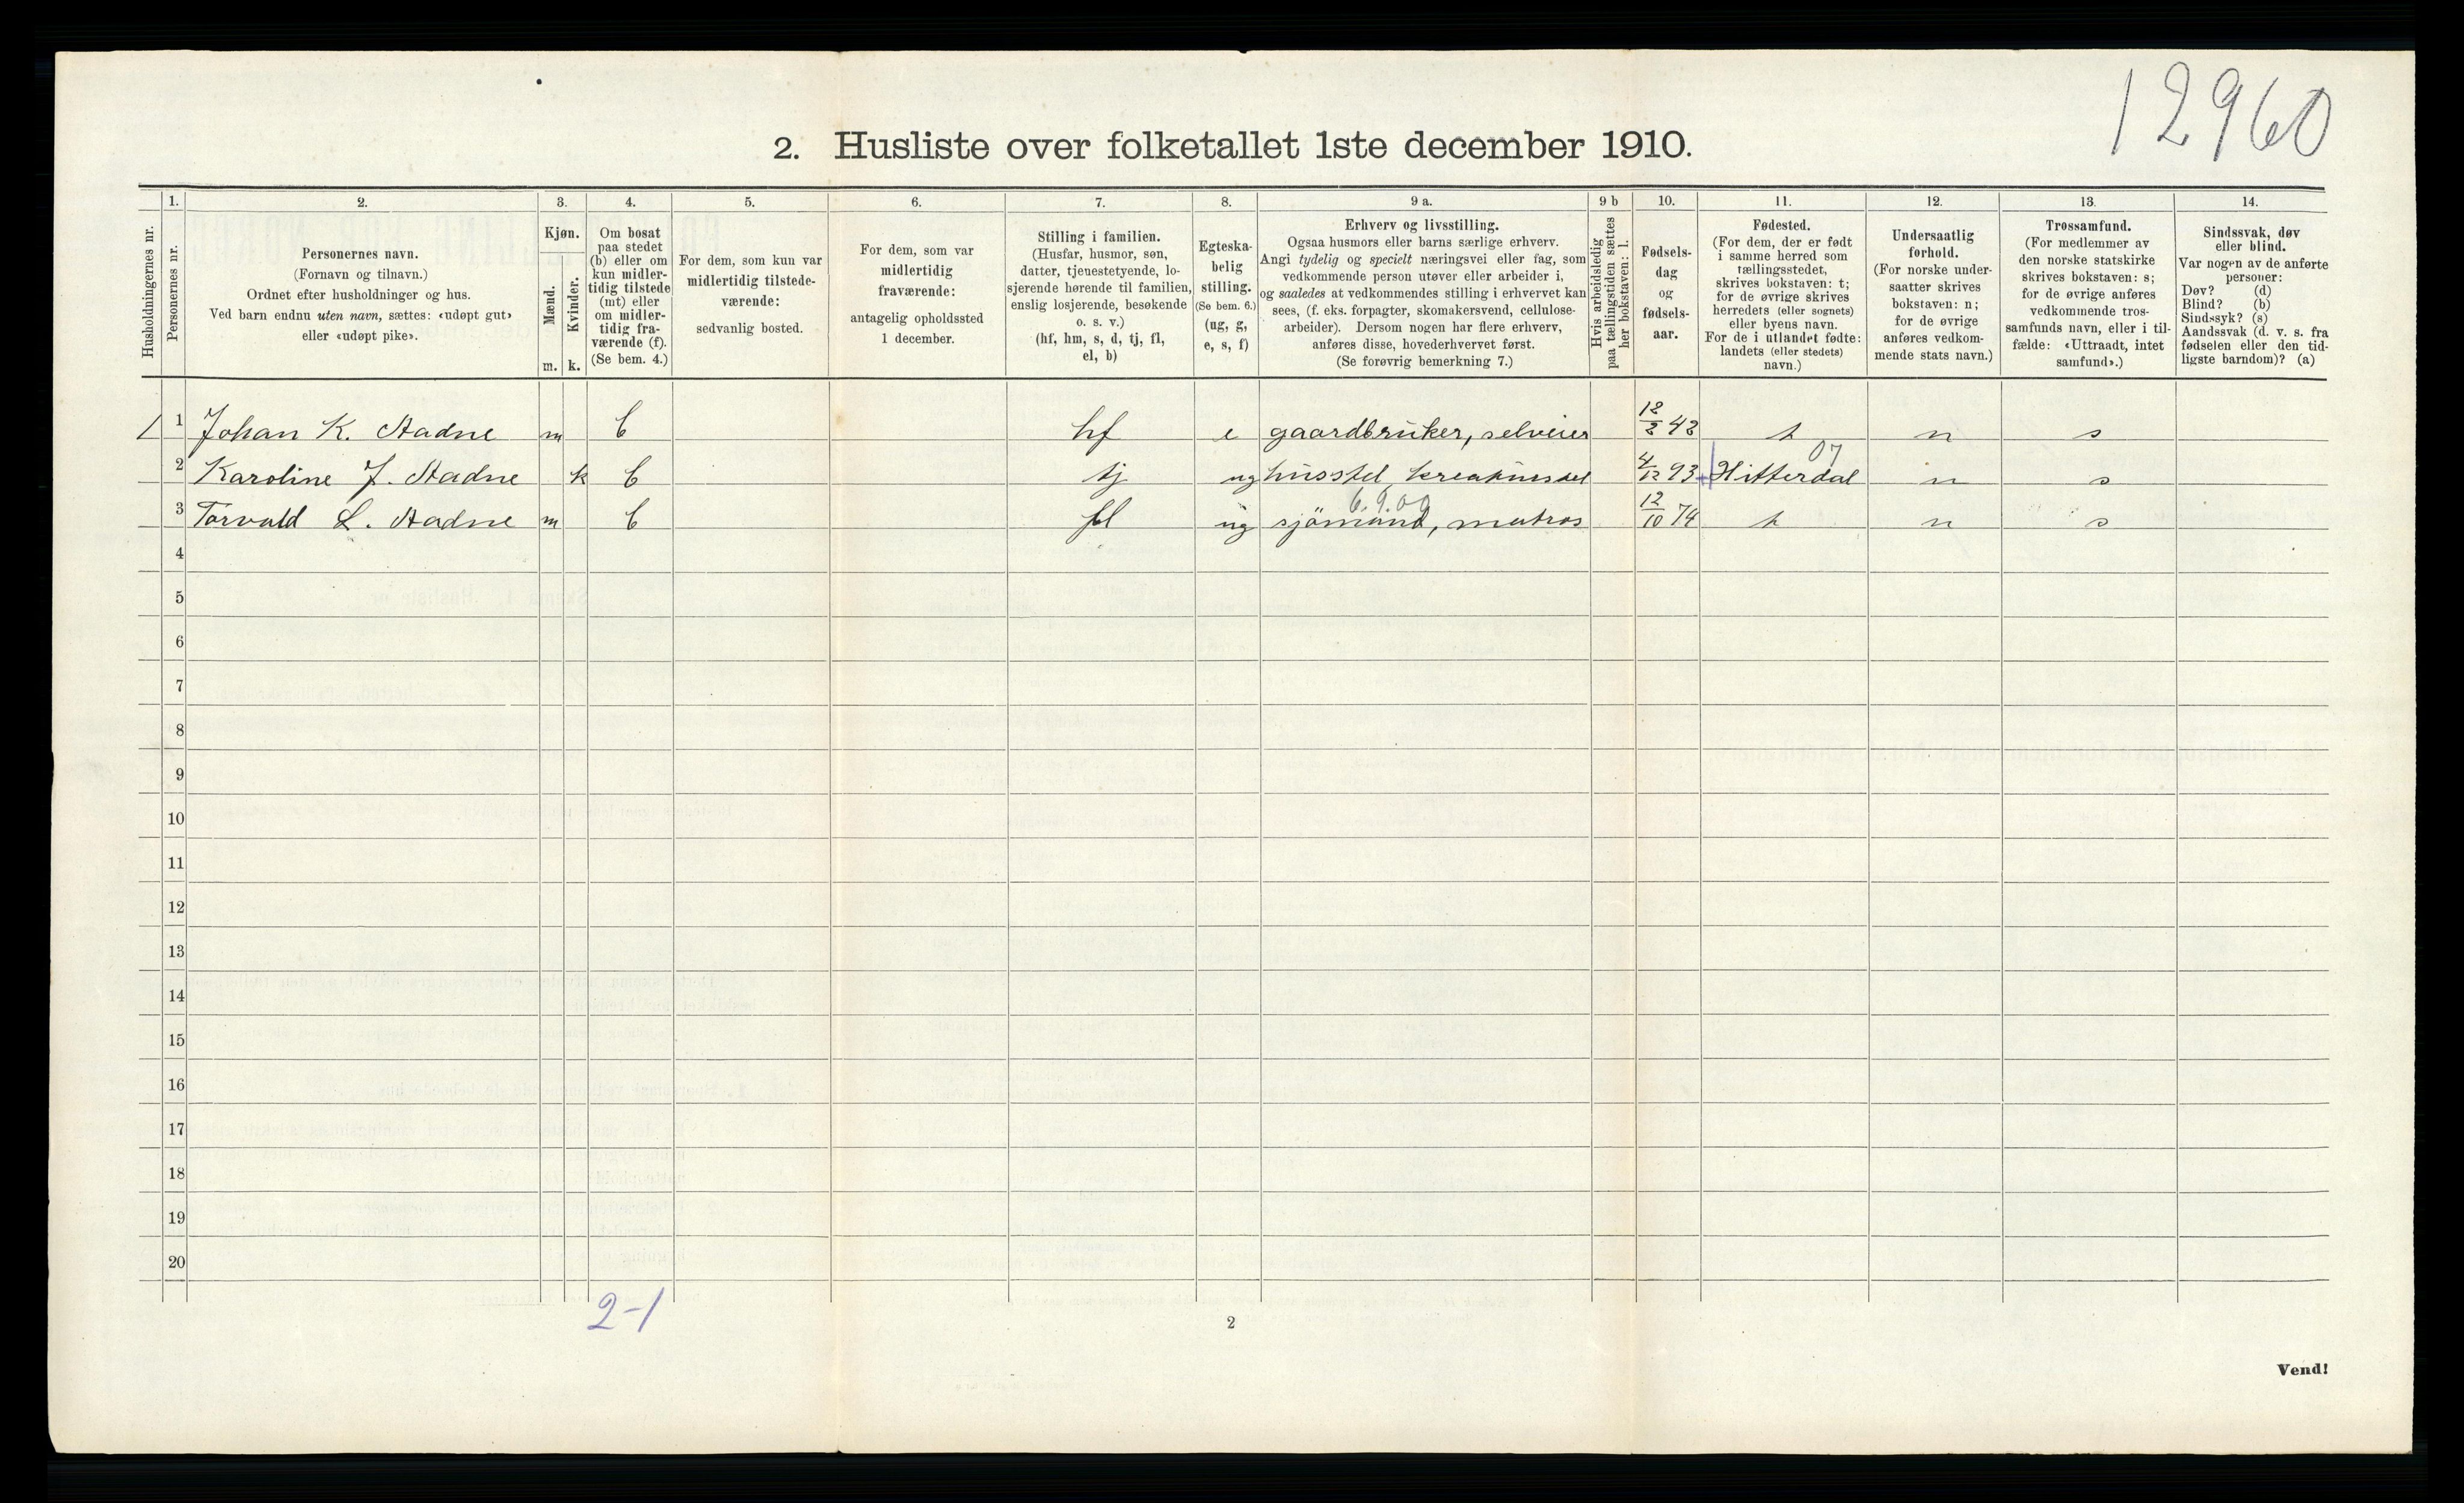 12960
2. Husliste over folketallet 1ste december 1910.
Husholdningernes nr.
1.
Personernes nr.
2.
Personernes navn.
(Fornavn og tilnavn.)
Ordnet efter husholdninger og hus.
Ved barn endnu uten navn, sættes: «udøpt gut»
eller «udøpt pike».
3.
Kjøn.
Mænd.
Kvinder.
m. k.
4.
Om bosat
paa stedet
(b) eller om
kun midler-
tidig tilstede
(mt) eller
om midler-
tidig fra-
værende (f).
(Se bem. 4.)
5.
For dem, som kun var
midlertidig tilstede-
værende:
sedvanlig bosted.
6.
For dem, som var
midlertidig
fraværende:
antagelig opholdssted
1 december.
7.
Stilling i familien.
(Husfar, husmor, søn,
datter, tjenestetyende, lo-
sjerende hørende til familien,
enslig losjerende, besøkende
o. s. v.)
(hf, hm, s, d, tj, fl,
el, b)
8.
Egteska-
belig
stilling.
(Se bem. 6.)
(ug, g,
e, s, f)
9 a.
Erhverv og livsstilling.
Ogsaa husmors eller barns særlige erhverv.
Angi tydelig og specielt næringsvei eller fag, som
vedkommende person utøver eller arbeider i,
og saaledes at vedkommendes stilling i erhvervet kan
sees, (f. eks. forpagter, skomakersvend, cellulose-
arbeider). Dersom nogen har flere erhverv,
anføres disse, hovederhvervet først.
(Se forøvrig bemerkning 7.)
9 b
Hvis arbeidsledig
paa tællingstiden sættes
her bokstaven: l.
10.
Fødsels-
dag
og
fødsels-
aar.
11.
Fødested.
(For dem, der er født
i samme herred som
tællingsstedet,
skrives bokstaven: t;
for de øvrige skrives
herredets (eller sognets)
eller byens navn.
For de i utlandet fødte:
landets (eller stedets)
navn.)
12.
Undersaatlig
forhold.
(For norske under-
saatter skrives
bokstaven: n;
for de øvrige
anføres vedkom-
mende stats navn.)
13.
Trossamfund.
(For medlemmer av
den norske statskirke
skrives bokstaven: s;
for de øvrige anføres
vedkommende tros-
samfunds navn, eller i til-
fælde: «Uttraadt, intet
samfund».)
14.
Sindssvak, døv
eller blind.
Var nogen av de anførte
personer:
Døv? (d)
Blind? (b)
Sindssyk? (s)
Aandssvak (d. v. s. fra
fødselen eller den tid-
ligste barndom)? (a)
1 1 Johan K. Aadne m b hf e gaardbruker, selveier t n s
2 Karoline J. Aadne k b tj ug husstel, kreaturstel 4/12 93 Hitterdal 07 n s
3 Torvald L. Aadne m b fl ug sjömand, matros 6.9.00 12/10 74 t n s
4
5
6
7
8
9
10
11
12
13
14
15
16
17
18
19
20
2-1
2
Vend!